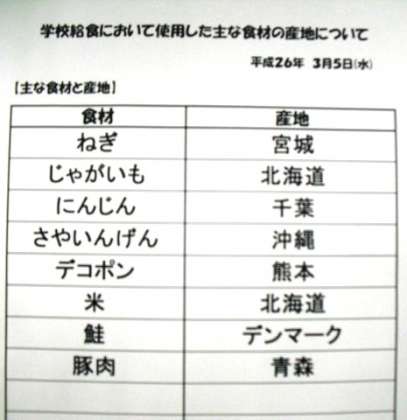 学校給食において使用した主な食材の産地について
平成26年 3月5日(水)
【主な食材と産地】
食材 産地
ねぎ 宮城
じゃがいも 北海道
にんじん 千葉
さやいんげん 沖縄
デコポン 熊本
米 北海道
鮭 デンマーク
豚肉 青森